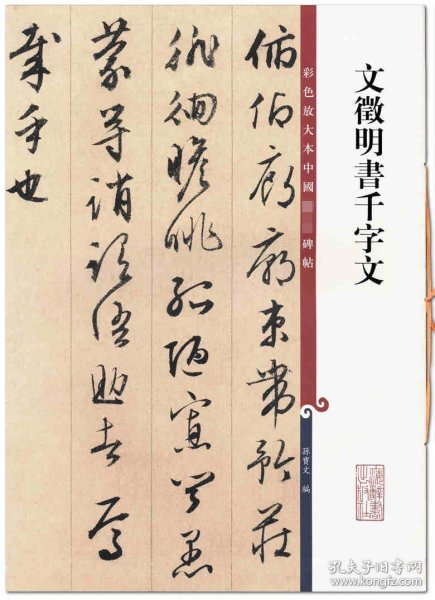 文徵明書千字文
彩色放大本中國
碑帖
孫寶文 編
上海辭書
出版社
俯仰廊廟束帶矜莊
徘徊瞻眺孤陋寡聞愚
蒙等誚謂語助者焉
哉乎也
孔夫子旧书网
www.kongfz.com